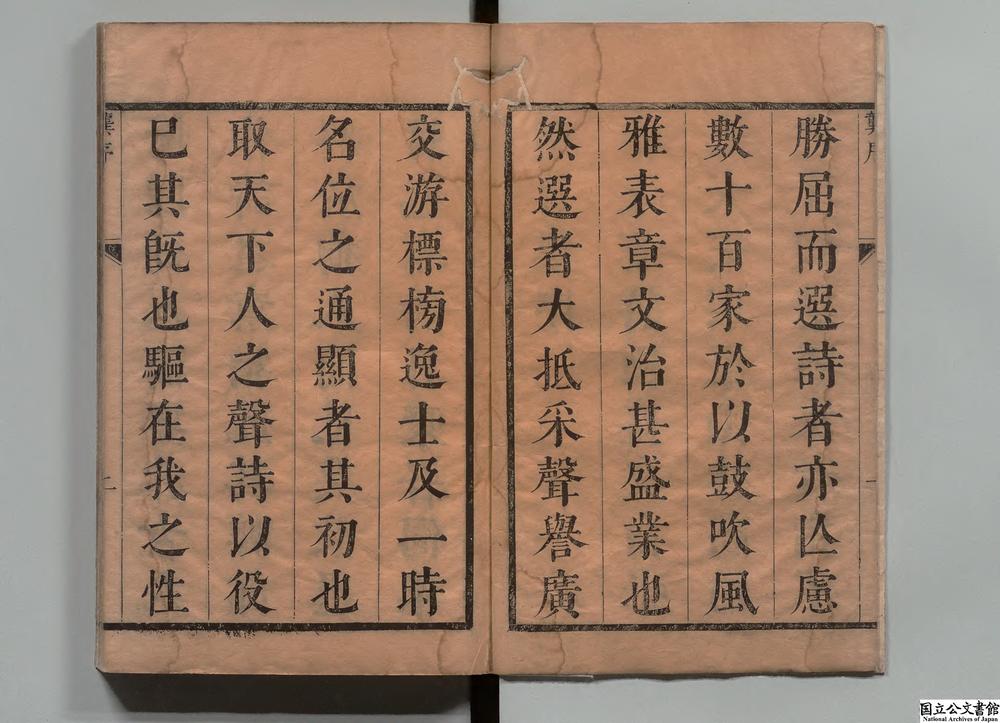 勝屈而選詩者亦亾慮
數十百家於以鼓吹風
雅表章文治甚盛業也
然選者大抵采聲譽廣
交游標榜逸士及一時
名位之通顯者其初也
取天下人之聲詩以役
已其旣也驅在我之性
国立公文書館
National Archives of Japan